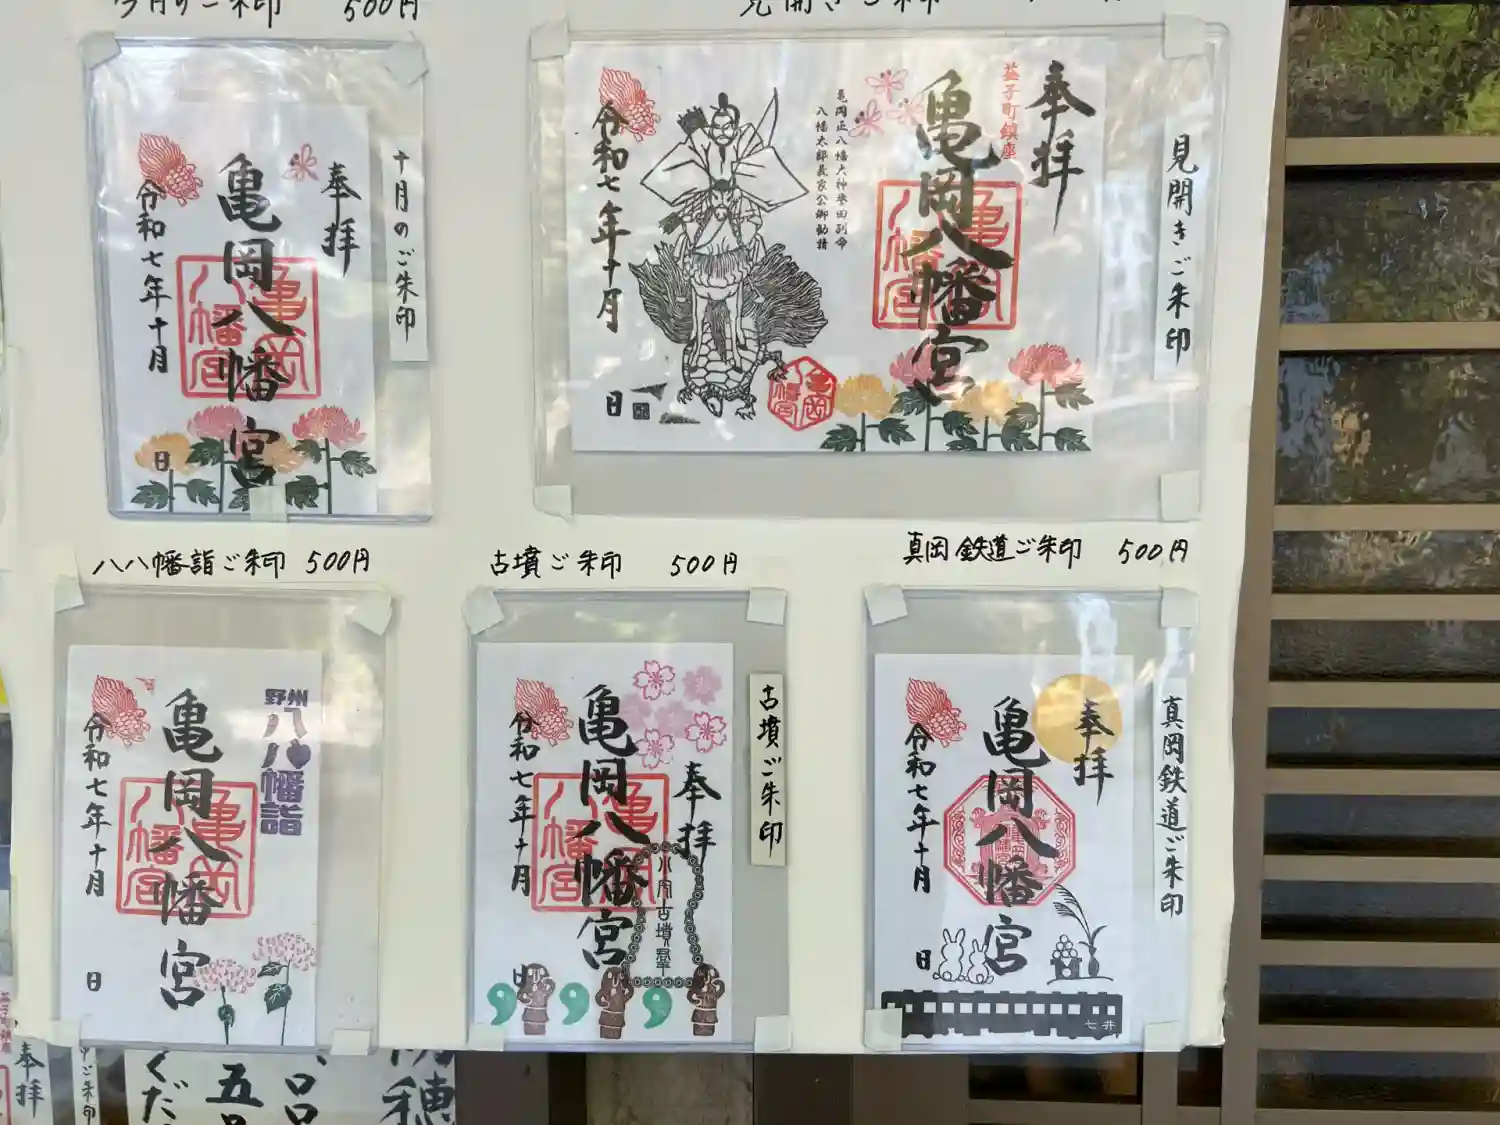 今月のご朱印 500円
見開きご朱印
十月のご朱印
奉拝
亀岡八幡宮
亀岡八幡宮
令和七年十月
日
見開きご朱印
奉拝
益子町鎮座
亀岡八幡宮
亀岡八幡宮
八幡太郎義家公御勧請
令和七年十月
日
亀岡八幡宮
八八幡詣ご朱印 500円
古墳ご朱印 500円
真岡鉄道ご朱印 500円
野州
八八幡詣
亀岡八幡宮
亀岡八幡宮
令和七年十月
日
古墳ご朱印
奉拝
亀岡八幡宮
亀岡八幡宮
小宅古墳群
令和七年十月
日
真岡鉄道ご朱印
奉拝
亀岡八幡宮
令和七年十月
日
七井
奉拝
ご朱印
くだ
五
穂